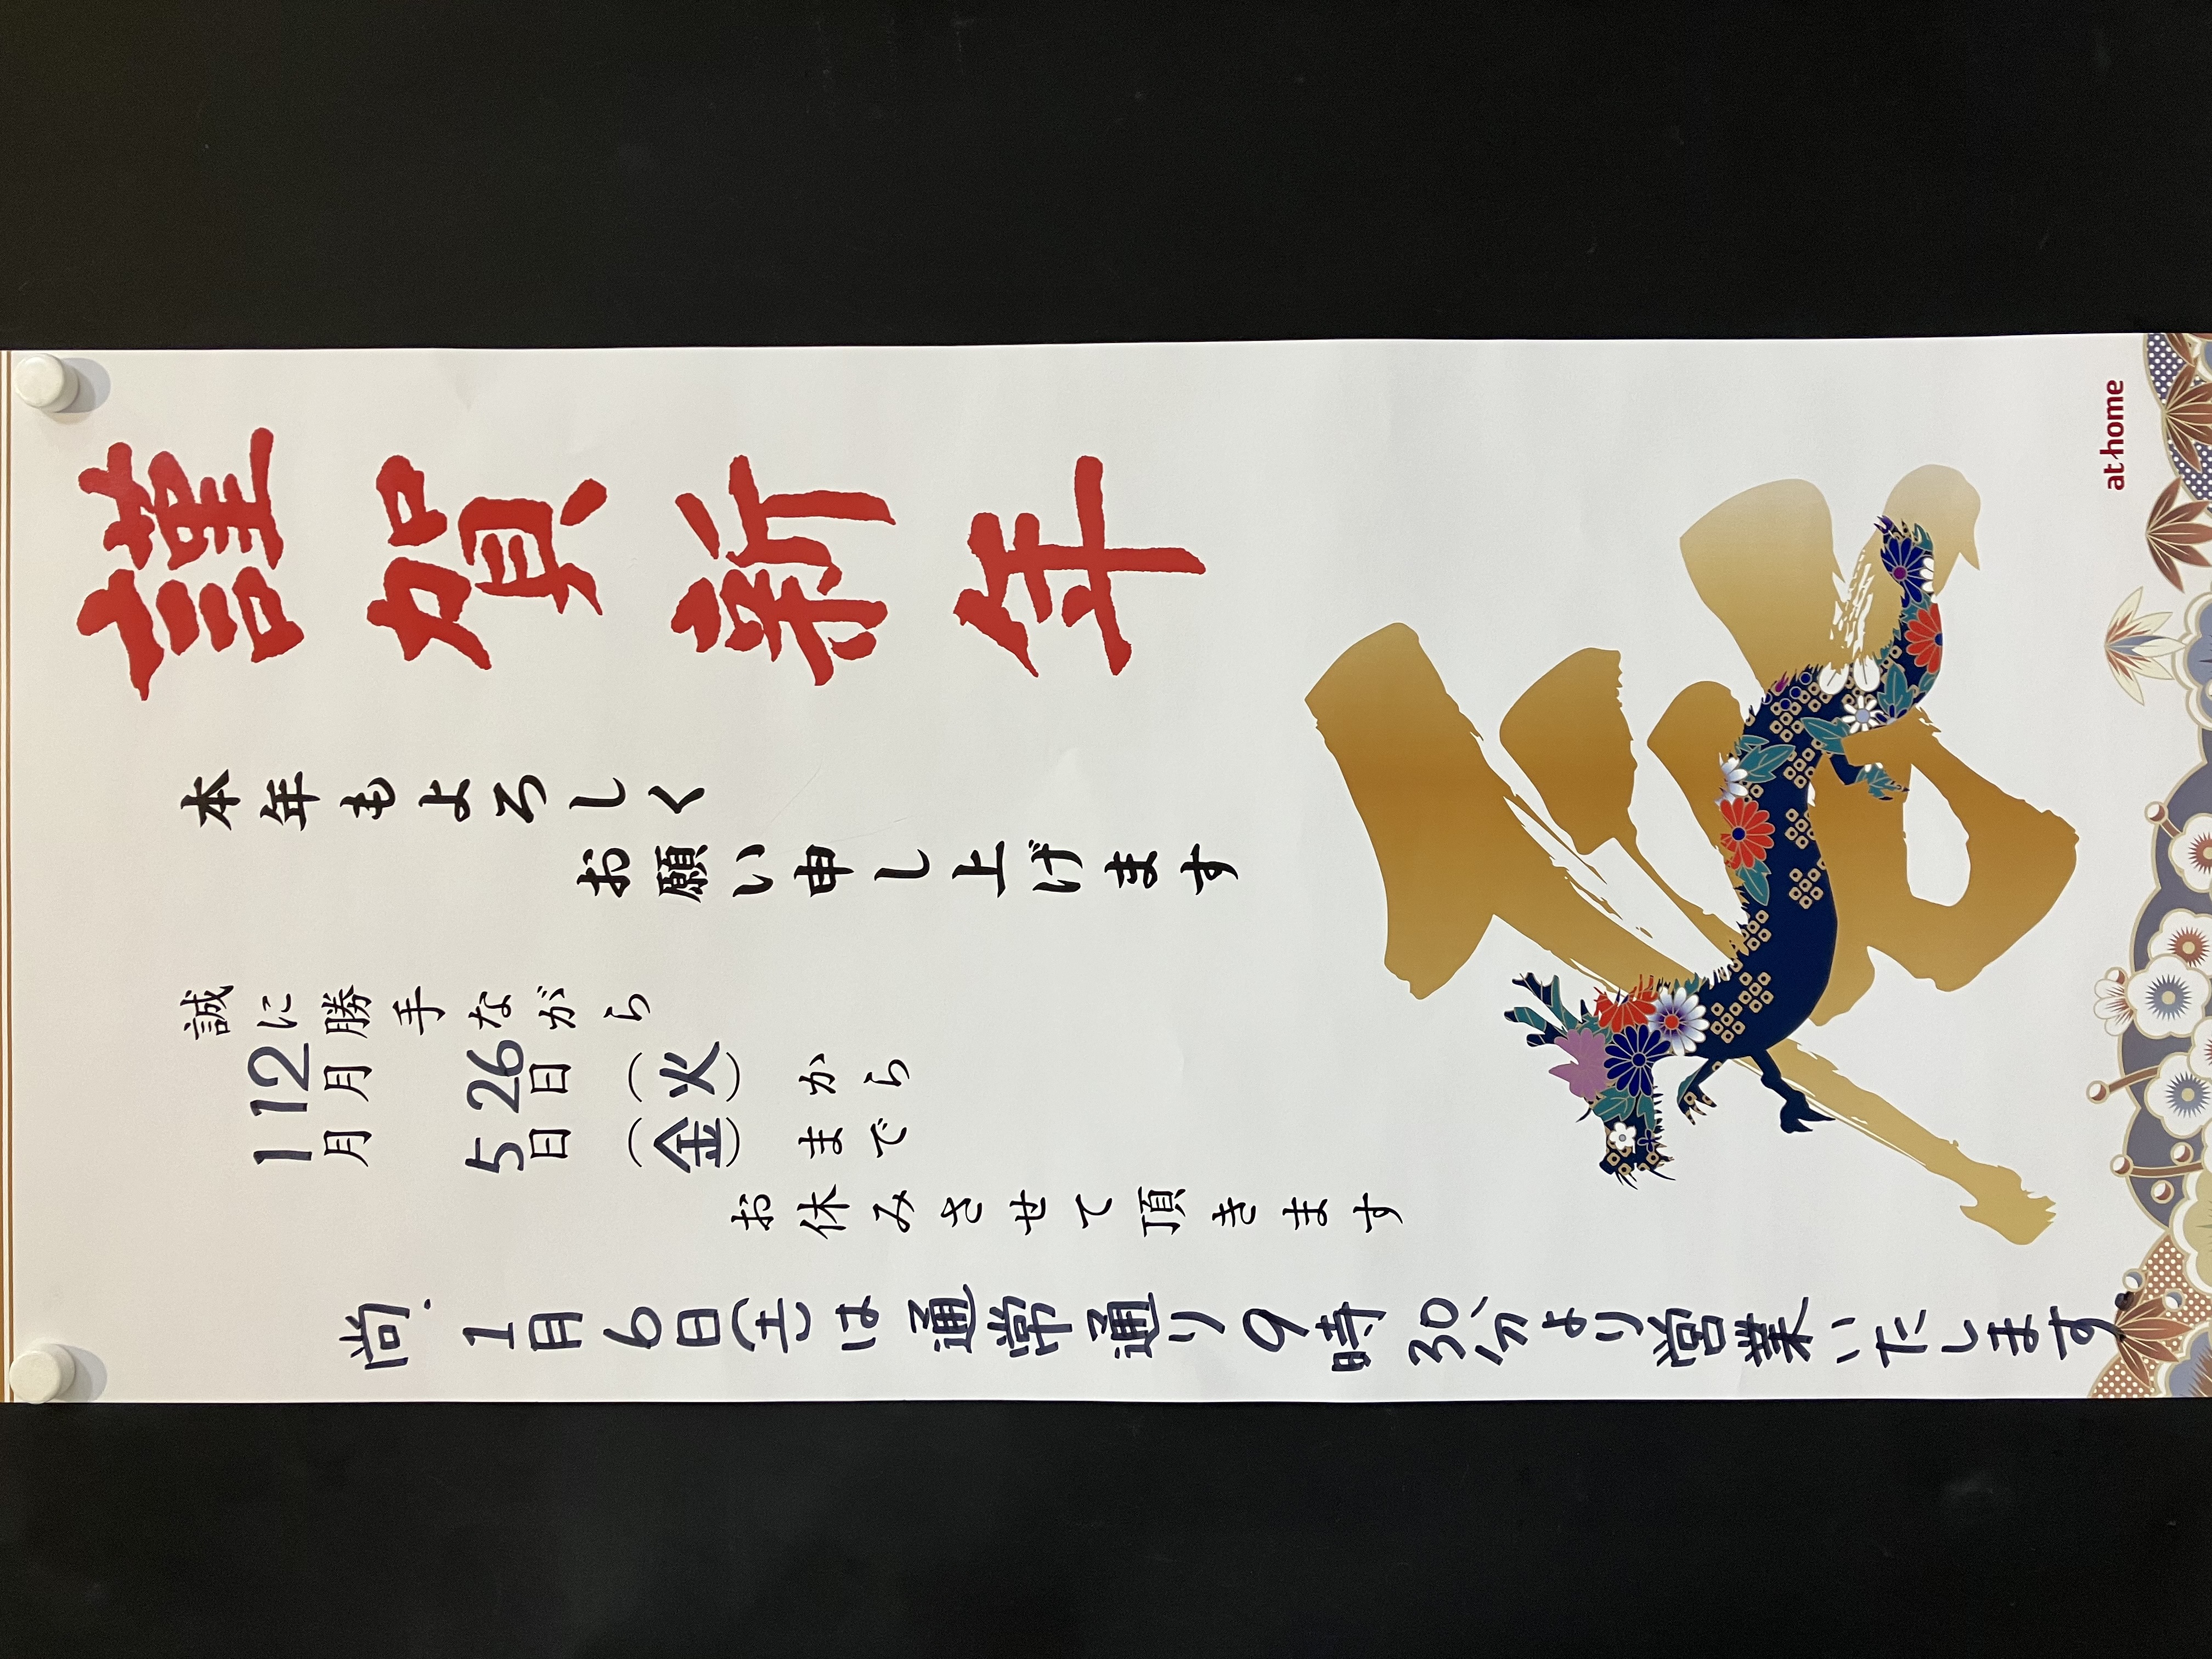 謹賀新年
本年もよろしく
お願い申し上げます
誠に勝手ながら
12月26日(火)から
1月5日(金)まで
お休みさせて頂きます
尚、1月6日(土)は通常通り9時30分より営業いたします。
辰
at home